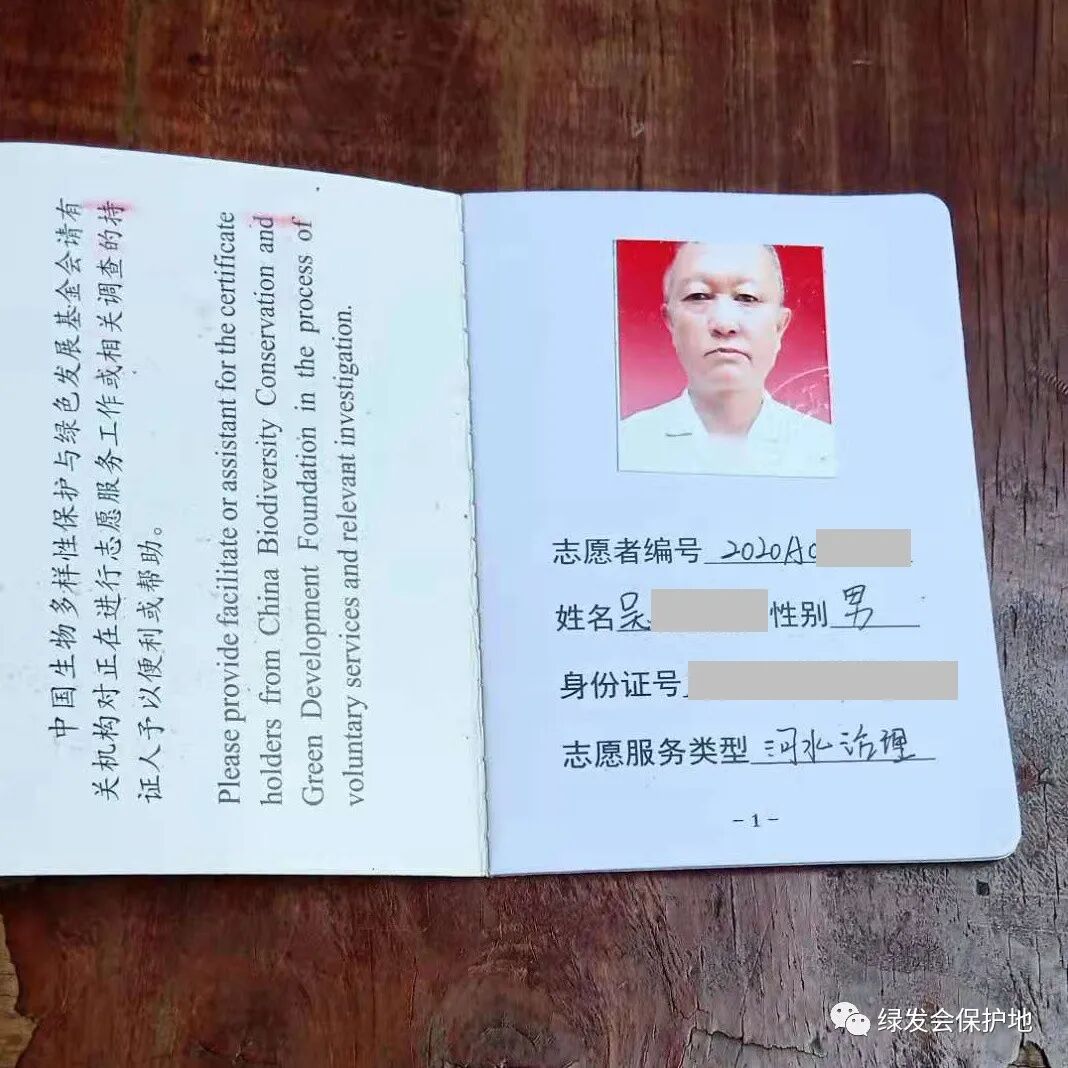 中国生物多样性保护与绿色发展基金会请有
关机构对正在进行志愿服务工作或相关调查的持
证人予以便利或帮助。
Please provide facilitate or assistant for the certificate
holders from China Biodiversity Conservation and
Green Development Foundation in the process of
voluntary services and relevant investigation.
志愿者编号 2020A0
姓名 吴 性别 男
身份证号
志愿服务类型 河水治理
-1-
绿发会保护地